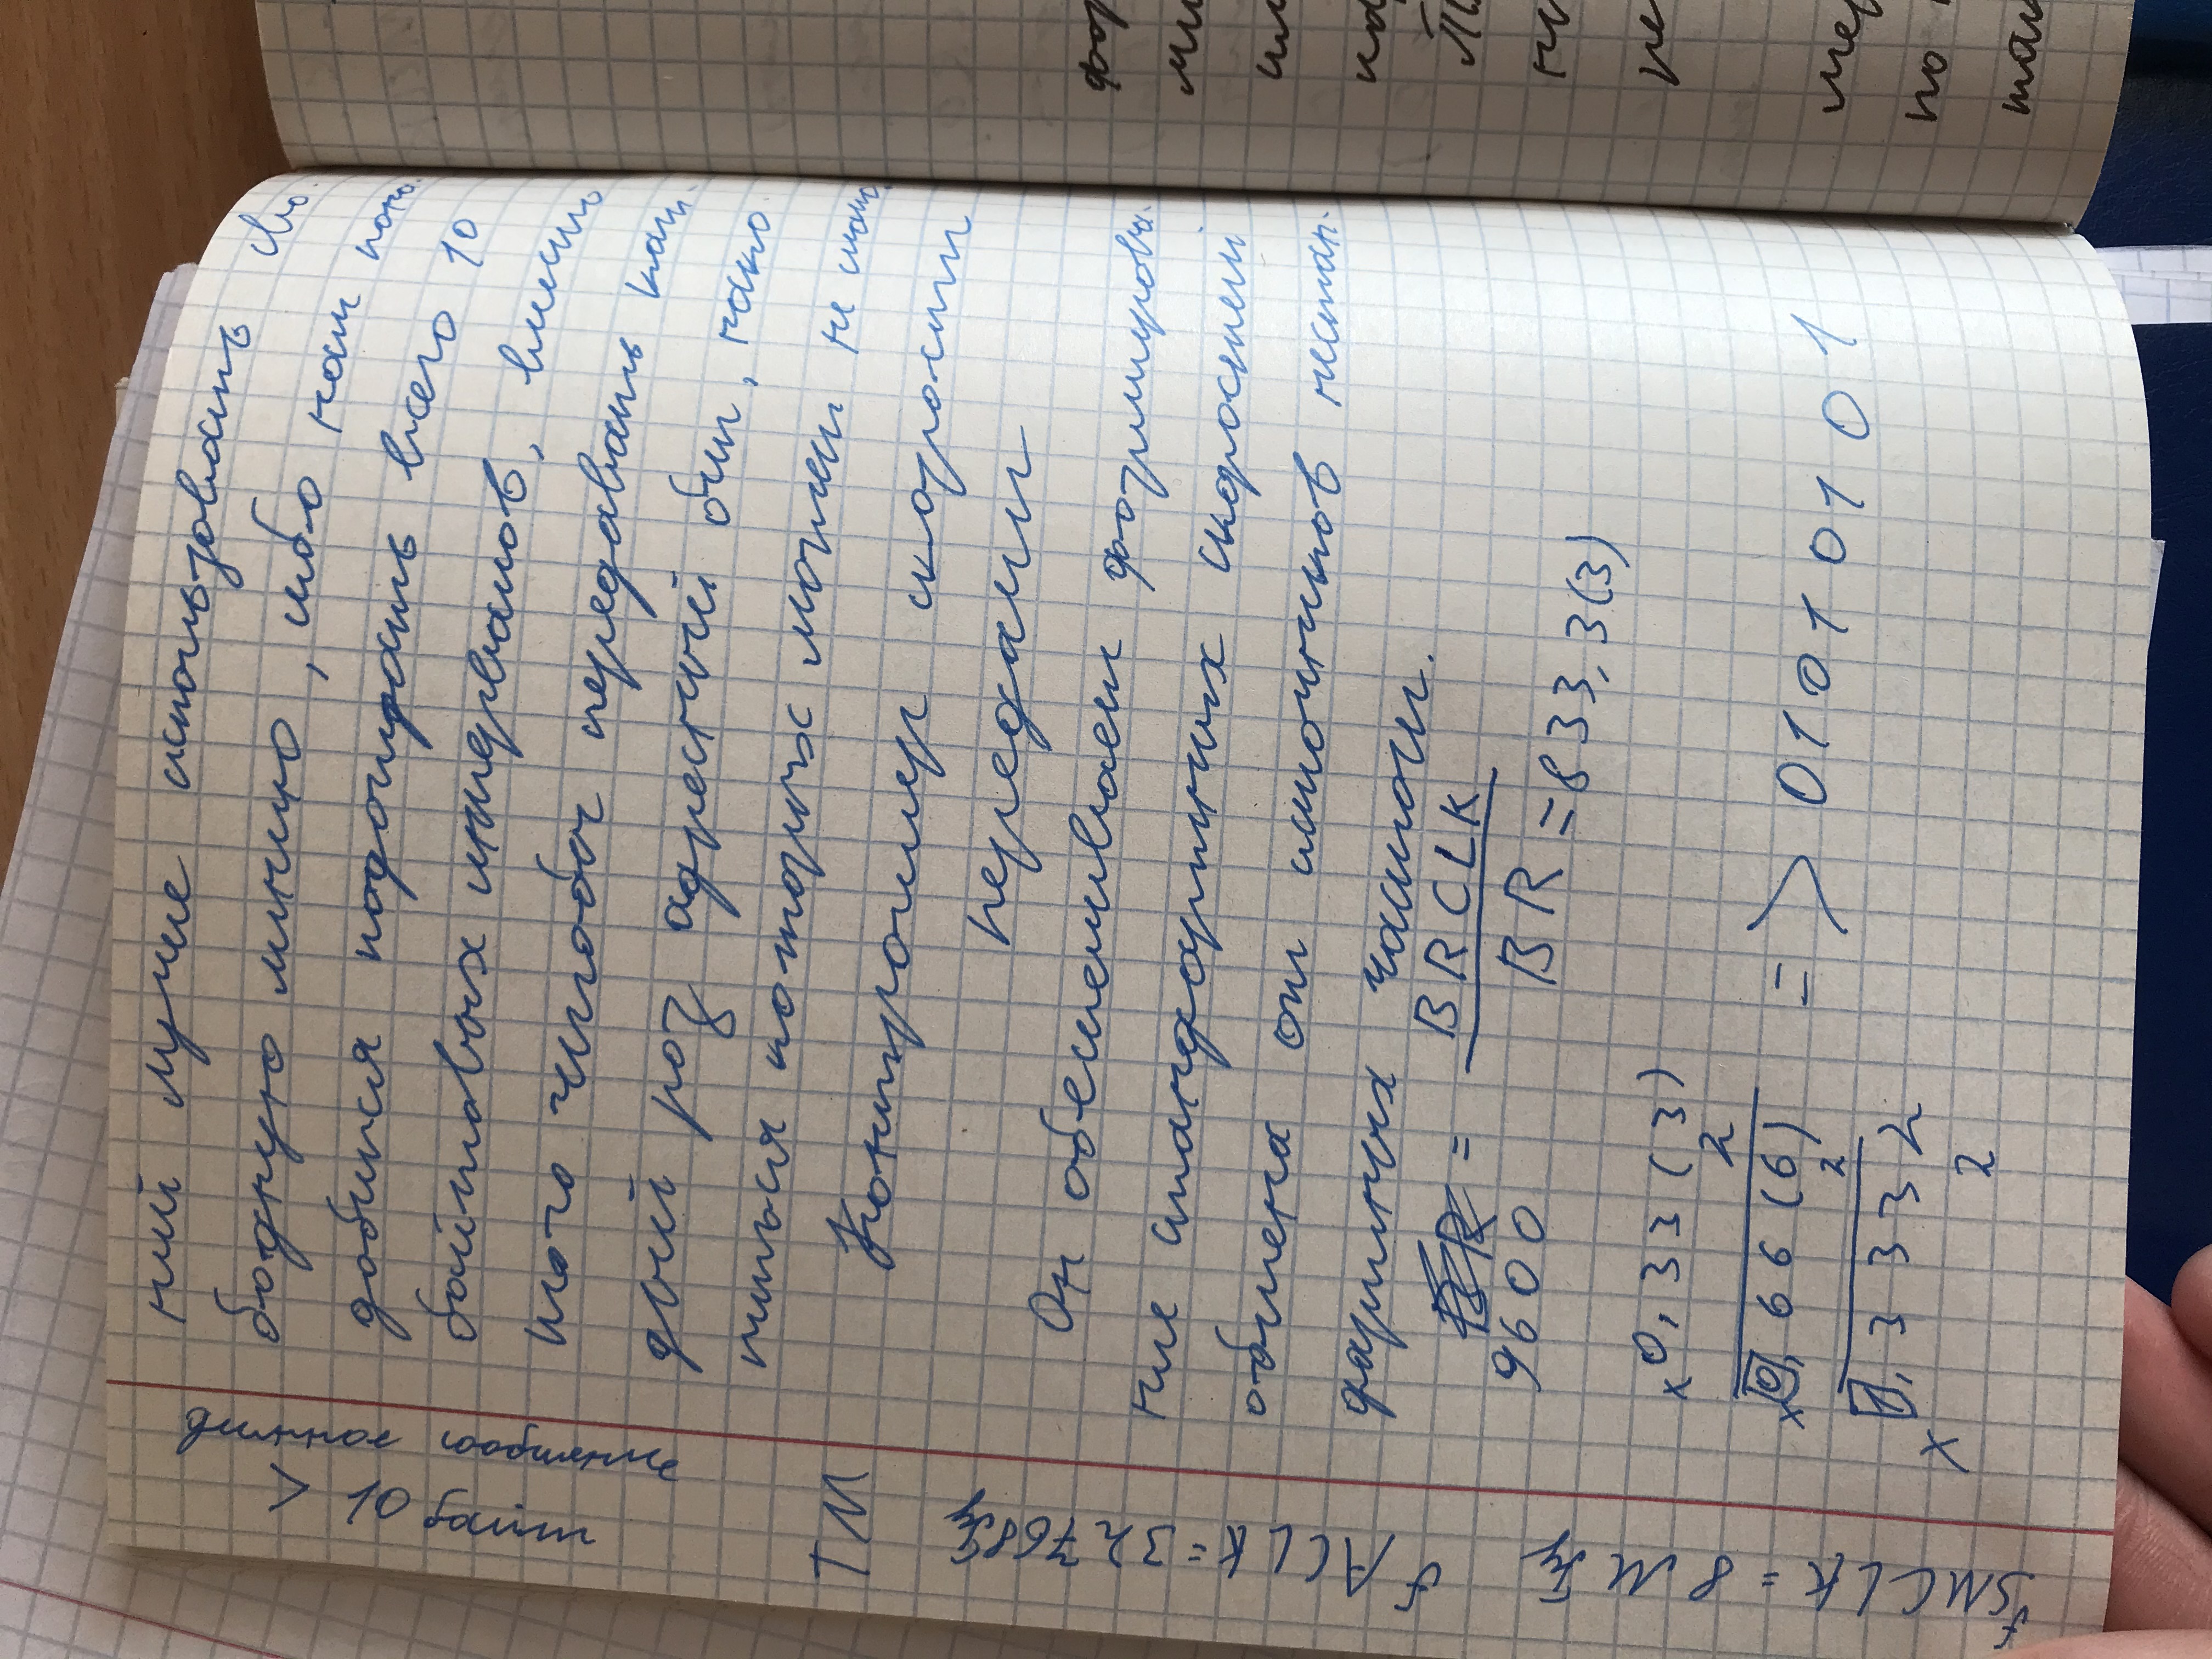 ний лучше использовать сво-
бодную линию, ибо нам пона-
добится подождать всего 10
байтовых интервалов, вместо
того чтобы передавать каж-
дый раз адресный бит, нако-
питься которых может не мало.
Контроллер скорости
передачи
Он обеспечивает формирова-
ние стандартных скоростей
обмена от источников нестан-
дартных частот.
= BRCLK
9600 BR = 833,3(3)
x 0,33(3)
2
x 0,66(6) => 01010101
2
1,3332
x
2
длинное сообщение
> 10 байт
TM
f ACLK = 32768 Гц
f SMCLK = 8 МГц
фор
ми
на
по
так